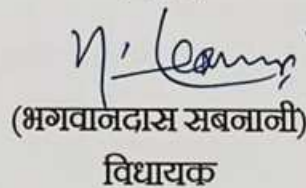 (भगवानदास सबनानी)
विधायक